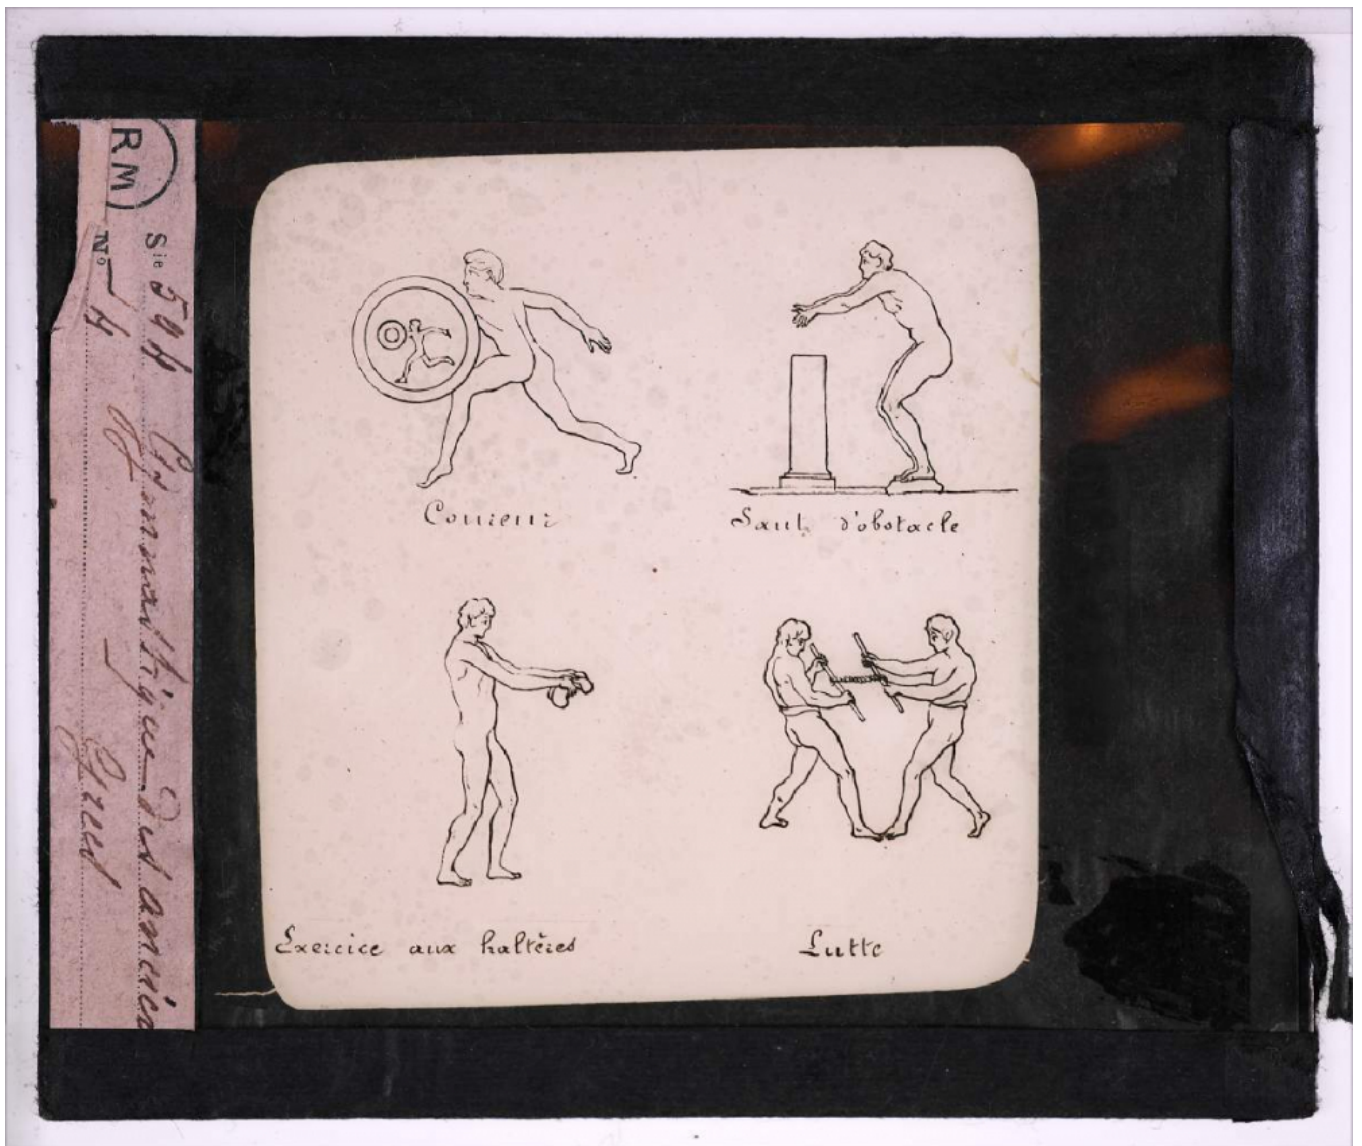 RM
Sie 594 Gymnastique des anciens
No 4 Grecs
Coureur
Saut d'obstacle
Exercice aux haltères
Lutte